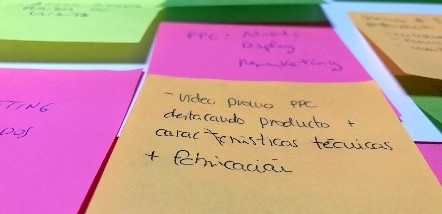 PPC: Adwords
Display
Remarketing
TING
DOS
- video promo PPC
destacando producto +
características técnicas
+ fabricación